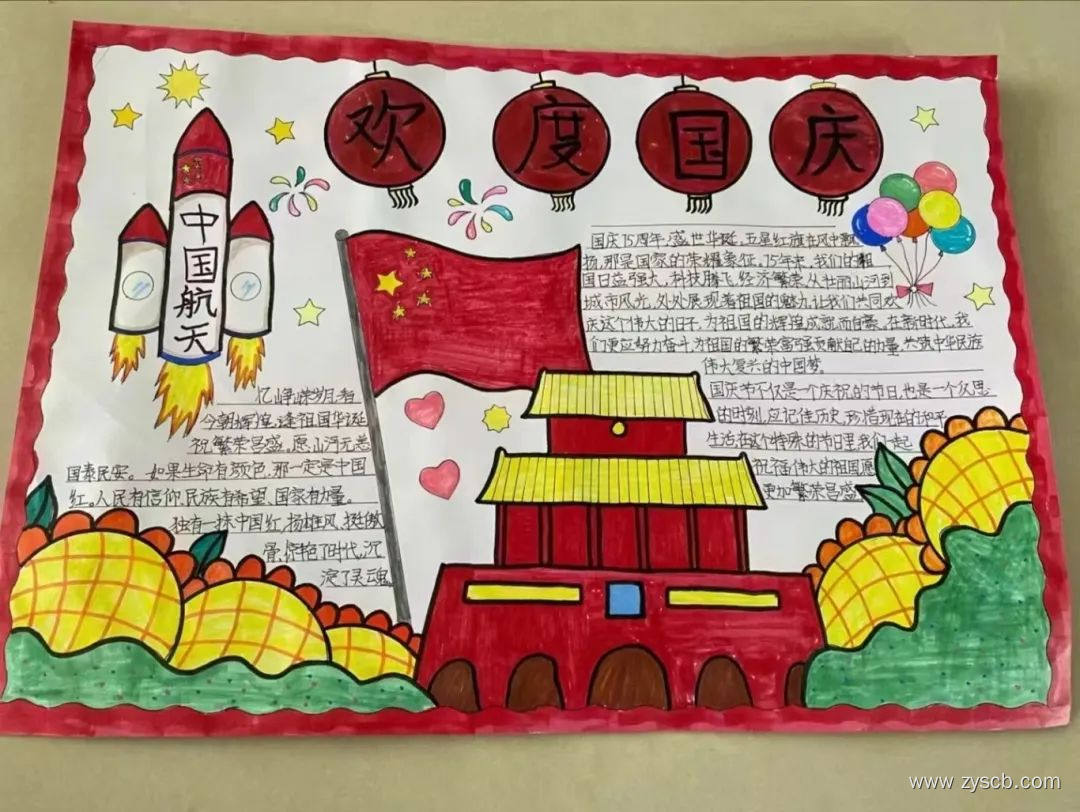 欢度国庆
中国航天
国庆75周年,盛世华诞,五星红旗在风中飘
扬,那是国家的荣耀象征。75年来,我们的祖
国日益强大,科技腾飞,经济繁荣。从壮丽山河到
城市风光,处处展现着祖国的魅力,让我们共同欢
庆这个伟大的日子,为祖国的辉煌成就而自豪。在新时代,我
们更应努力奋斗,为祖国的繁荣富强贡献自己的力量,共筑中华民族
伟大复兴的中国梦。
国庆节不仅是一个庆祝的节日,也是一个反思
的时刻,应记住历史,珍惜现在的和平
生活,在这个特殊的节日里,我们一起
祝福伟大的祖国愿
更加繁荣昌盛。
忆峥嵘岁月,看
今朝辉煌,逢祖国华诞
祝繁荣昌盛。愿山河无恙
国泰民安。如果生命有颜色,那一定是中国
红。人民有信仰,民族有希望,国家有力量。
独有一抹中国红,扬雄风,挺傲
骨,惊艳了时代,沉
淀了灵魂。
www.zyscb.com